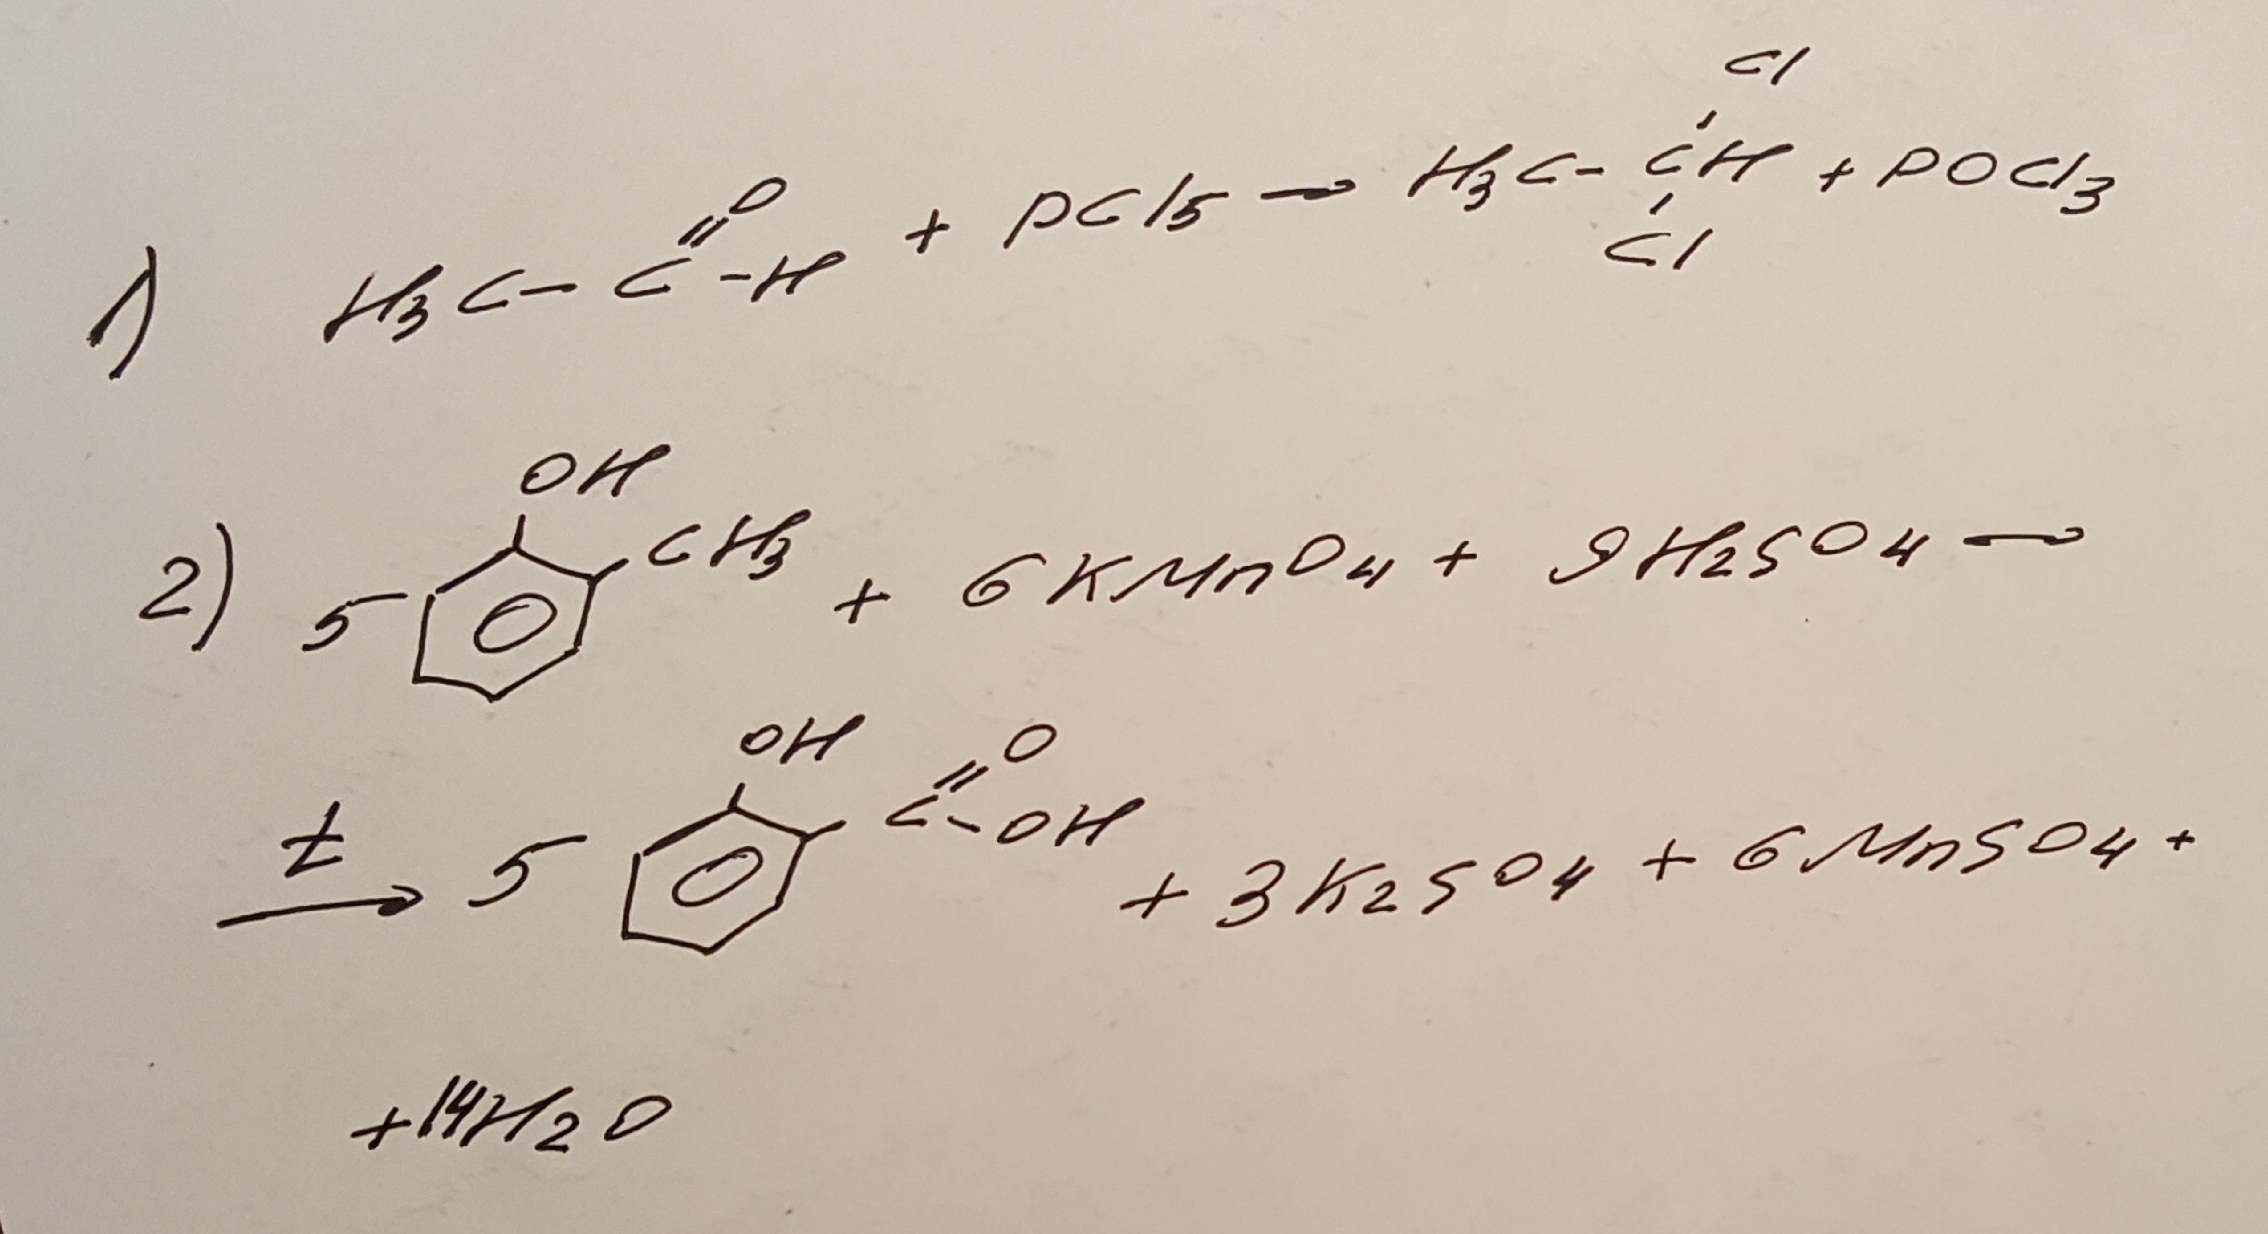 1) H₃C-C(=O)-H + PCl₅ → H₃C-CH(Cl)(Cl) + POCl₃
2) 5 C₆H₄(OH)(CH₃) + 6KMnO₄ + 9H₂SO₄ →
t→ 5 C₆H₄(OH)(C(=O)-OH) + 3K₂SO₄ + 6MnSO₄ +
+14H₂O